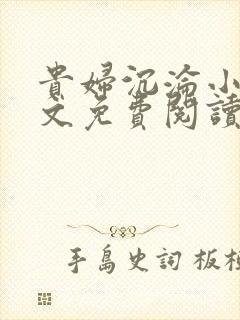 貴婦沉淪小
文免費閱讀
手島史詞 板橋